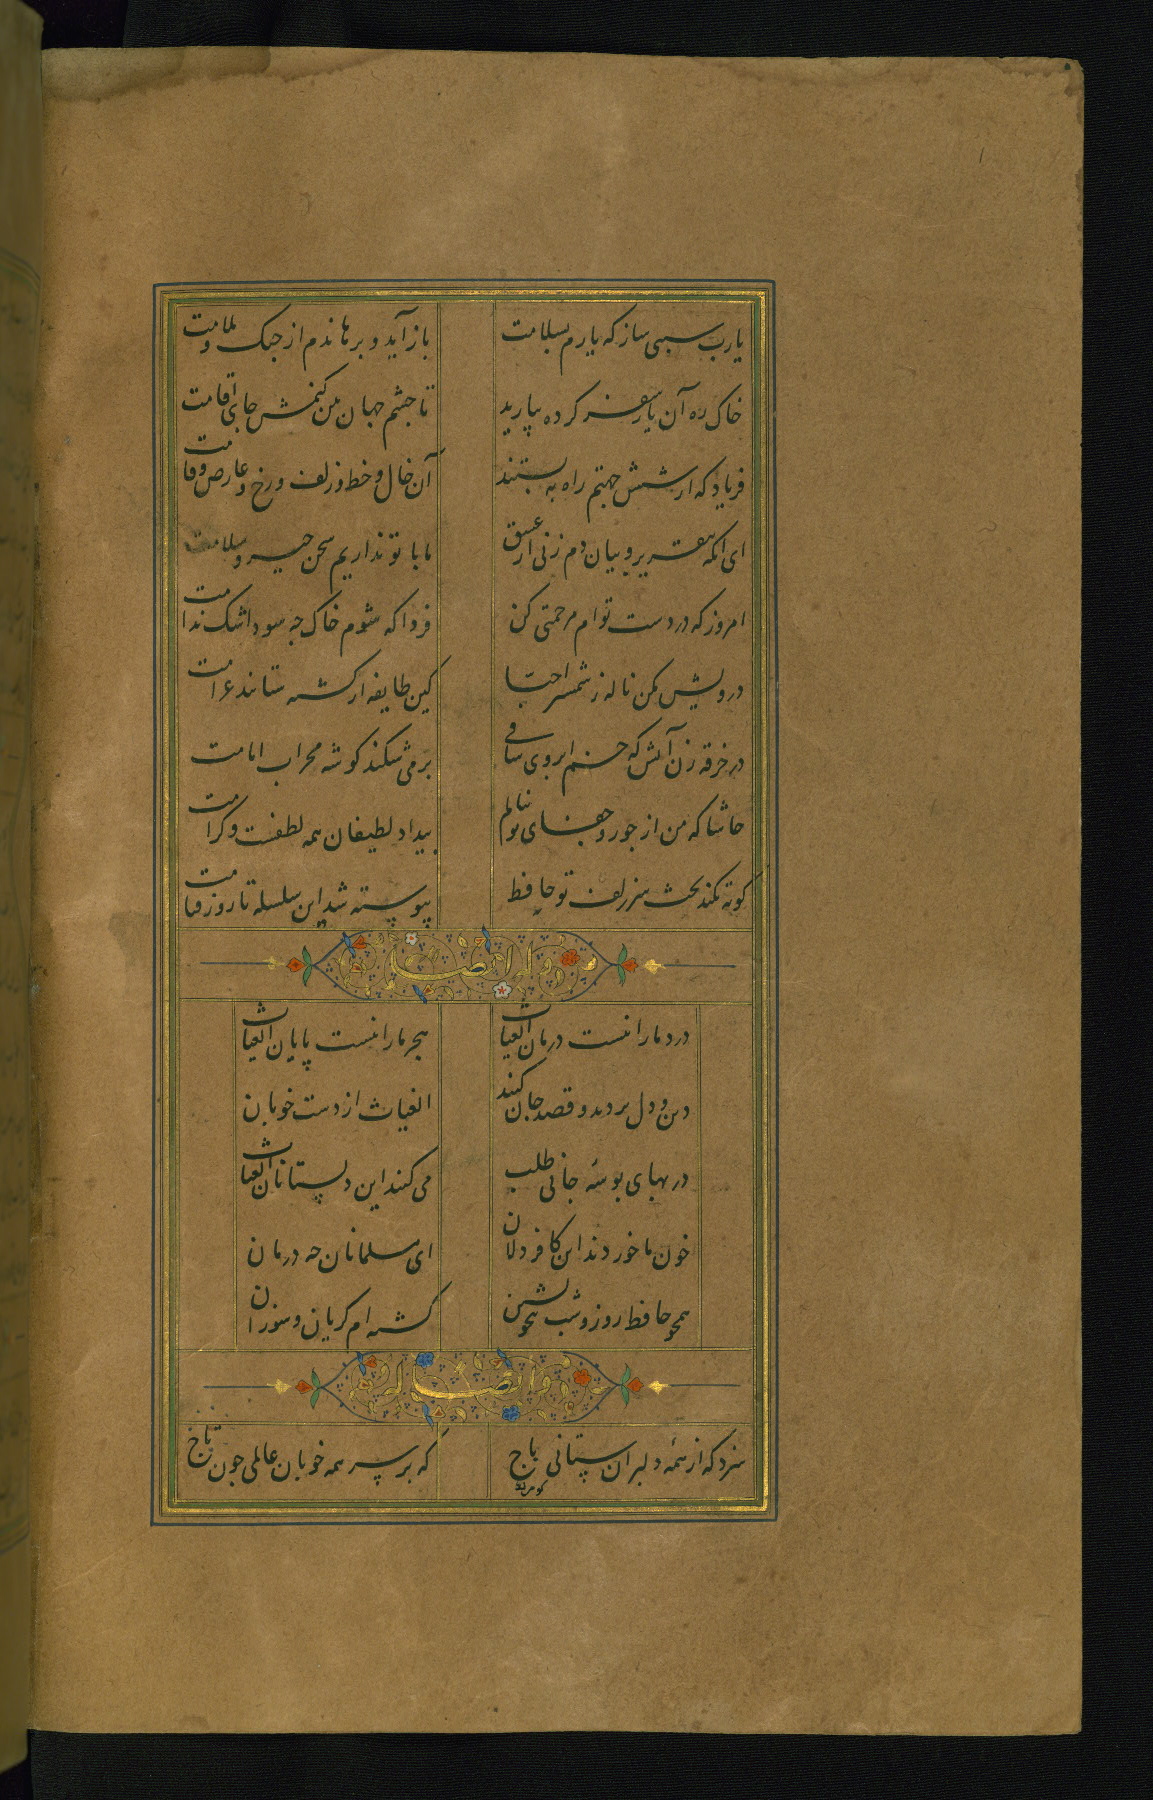 یارب سببی ساز که یارم بسلامت
باز آید و برهاندم از چنک ملامت
خاک ره آن یار سفر کرده بیارید
تا چشم جهان بین کنمش جای اقامت
فریاد که از شش جهتم راه به بستند
آن خال و خط و زلف و رخ و عارض و قامت
ای انکه بتقریر و بیان دم زنی از عشق
ما با تو نداریم سخن خیر و سلامت
امروز که در دست توام مرحمتی کن
فردا که شوم خاک چه سود اشک ندامت
درویش مکن ناله ز شمشیر احبا
کین طایفه از کشته ستانند غرامت
در خرقه زن آتش که خم ابروی ساقی
بر می شکند کوشه محراب امامت
حاشا که من از جور و جفای تو بنالم
بیداد لطیفان همه لطفست و کرامت
کوته نکند بحث سر زلف تو حافظ
پیوسته شد این سلسله تا روز قیامت
وله ایضا
درد ما را نیست درمان الغیاث
هجر ما را نیست پایان الغیاث
دین و دل بردند و قصد جان کنند
الغیاث از دست خوبان
در بهای بوسهٔ جانی طلب
می کنند این دلستانان الغیاث
خون ما خوردند این کافر دلان
ای مسلمانان چه درمان
همچو حافظ روز و شب بی خویشتن
کشته ام کریان و سوزان
وله ایضا
سزد که از همهٔ دلبران ستانی باج
که بر سر همه خوبان عالمی چون تاج